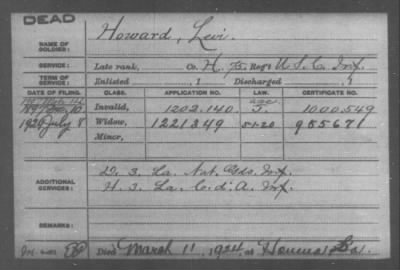 DEAD
NAME OF SOLDIER:
Howard, Levi.
SERVICE:
Late rank, Co. H, 75 Reg't U.S.C. Inf.
TERM OF SERVICE:
Enlisted , 1 Discharged , 1
DATE OF FILING. CLASS. APPLICATION NO. LAW. CERTIFICATE NO.
Invalid, 1202.140 age 1000.549
1924 July 8 Widow, 1221349 5-1-20 955671
Minor,
ADDITIONAL SERVICES:
D. 3. La. Nat. Gds. Inf.
H. 3. La. C. d'A. Inf.
REMARKS:
Died March 11, 1924, at Houma La.